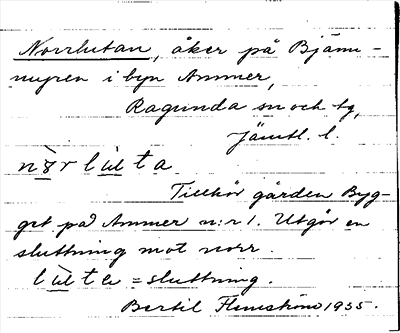 Norrlutan, åker på Bjänn-
myren i byn Ammer,
Ragunda sn och tg,
Jämtl. l.
nòrlùta
Tillhör gården Byg-
get på Ammer n:r 1. Utgör en
sluttning mot norr.
lùta = sluttning.
Bertil 1935.